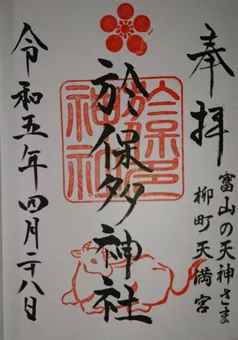 奉拝
富山の天神さま
柳町天満宮
於保多神社
於保多
神社
令和五年四月二八日